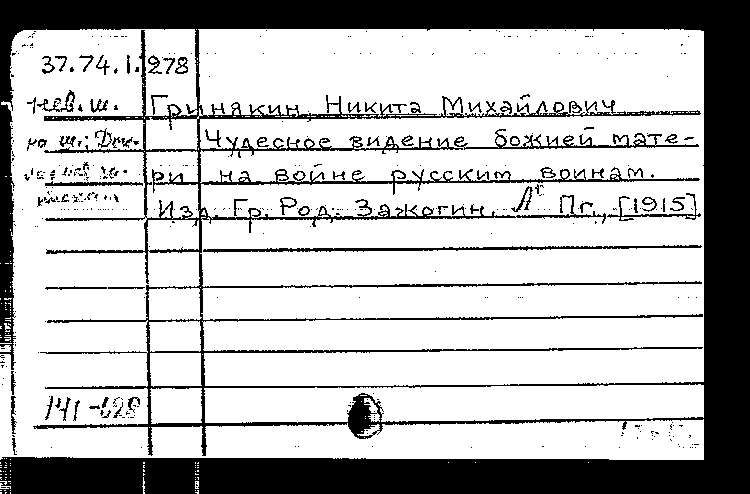 37.74.1.278
Гринякин, Никита Михайлович
Чудесное видение божией мате-
ри на войне русским воинам.
Изд. Гр. Род. Зажогин, Пг., [1915]
141-628